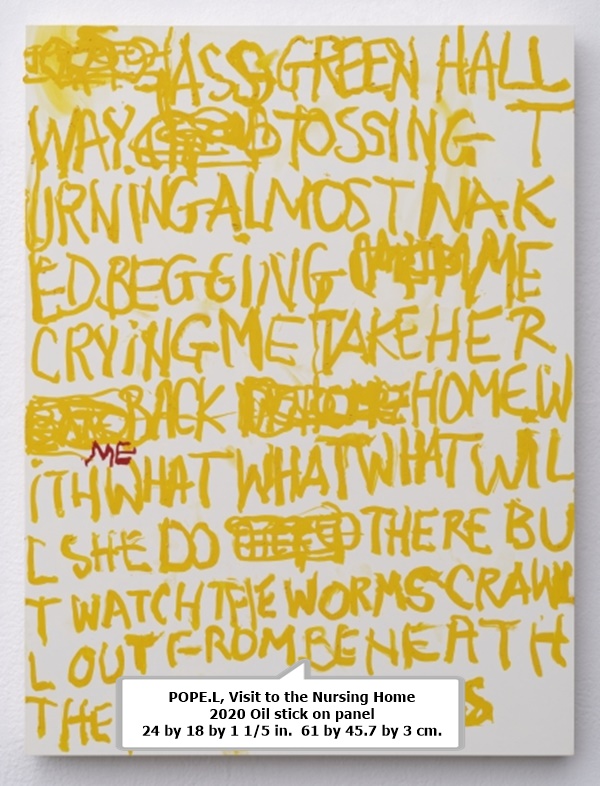 ASS GREEN HALL
WAY. TOSSING T
URNING ALMOST NAK
ED BEGGING ME
CRYING ME TAKE HER
BACK HOME. W
ME
ITH WHAT WHAT WHAT WIL
L SHE DO THERE BU
T WATCH THE WORMS CRAWL
L OUT FROM BENEATH
THE
POPE.L, Visit to the Nursing Home
2020 Oil stick on panel
24 by 18 by 1 1/5 in. 61 by 45.7 by 3 cm.